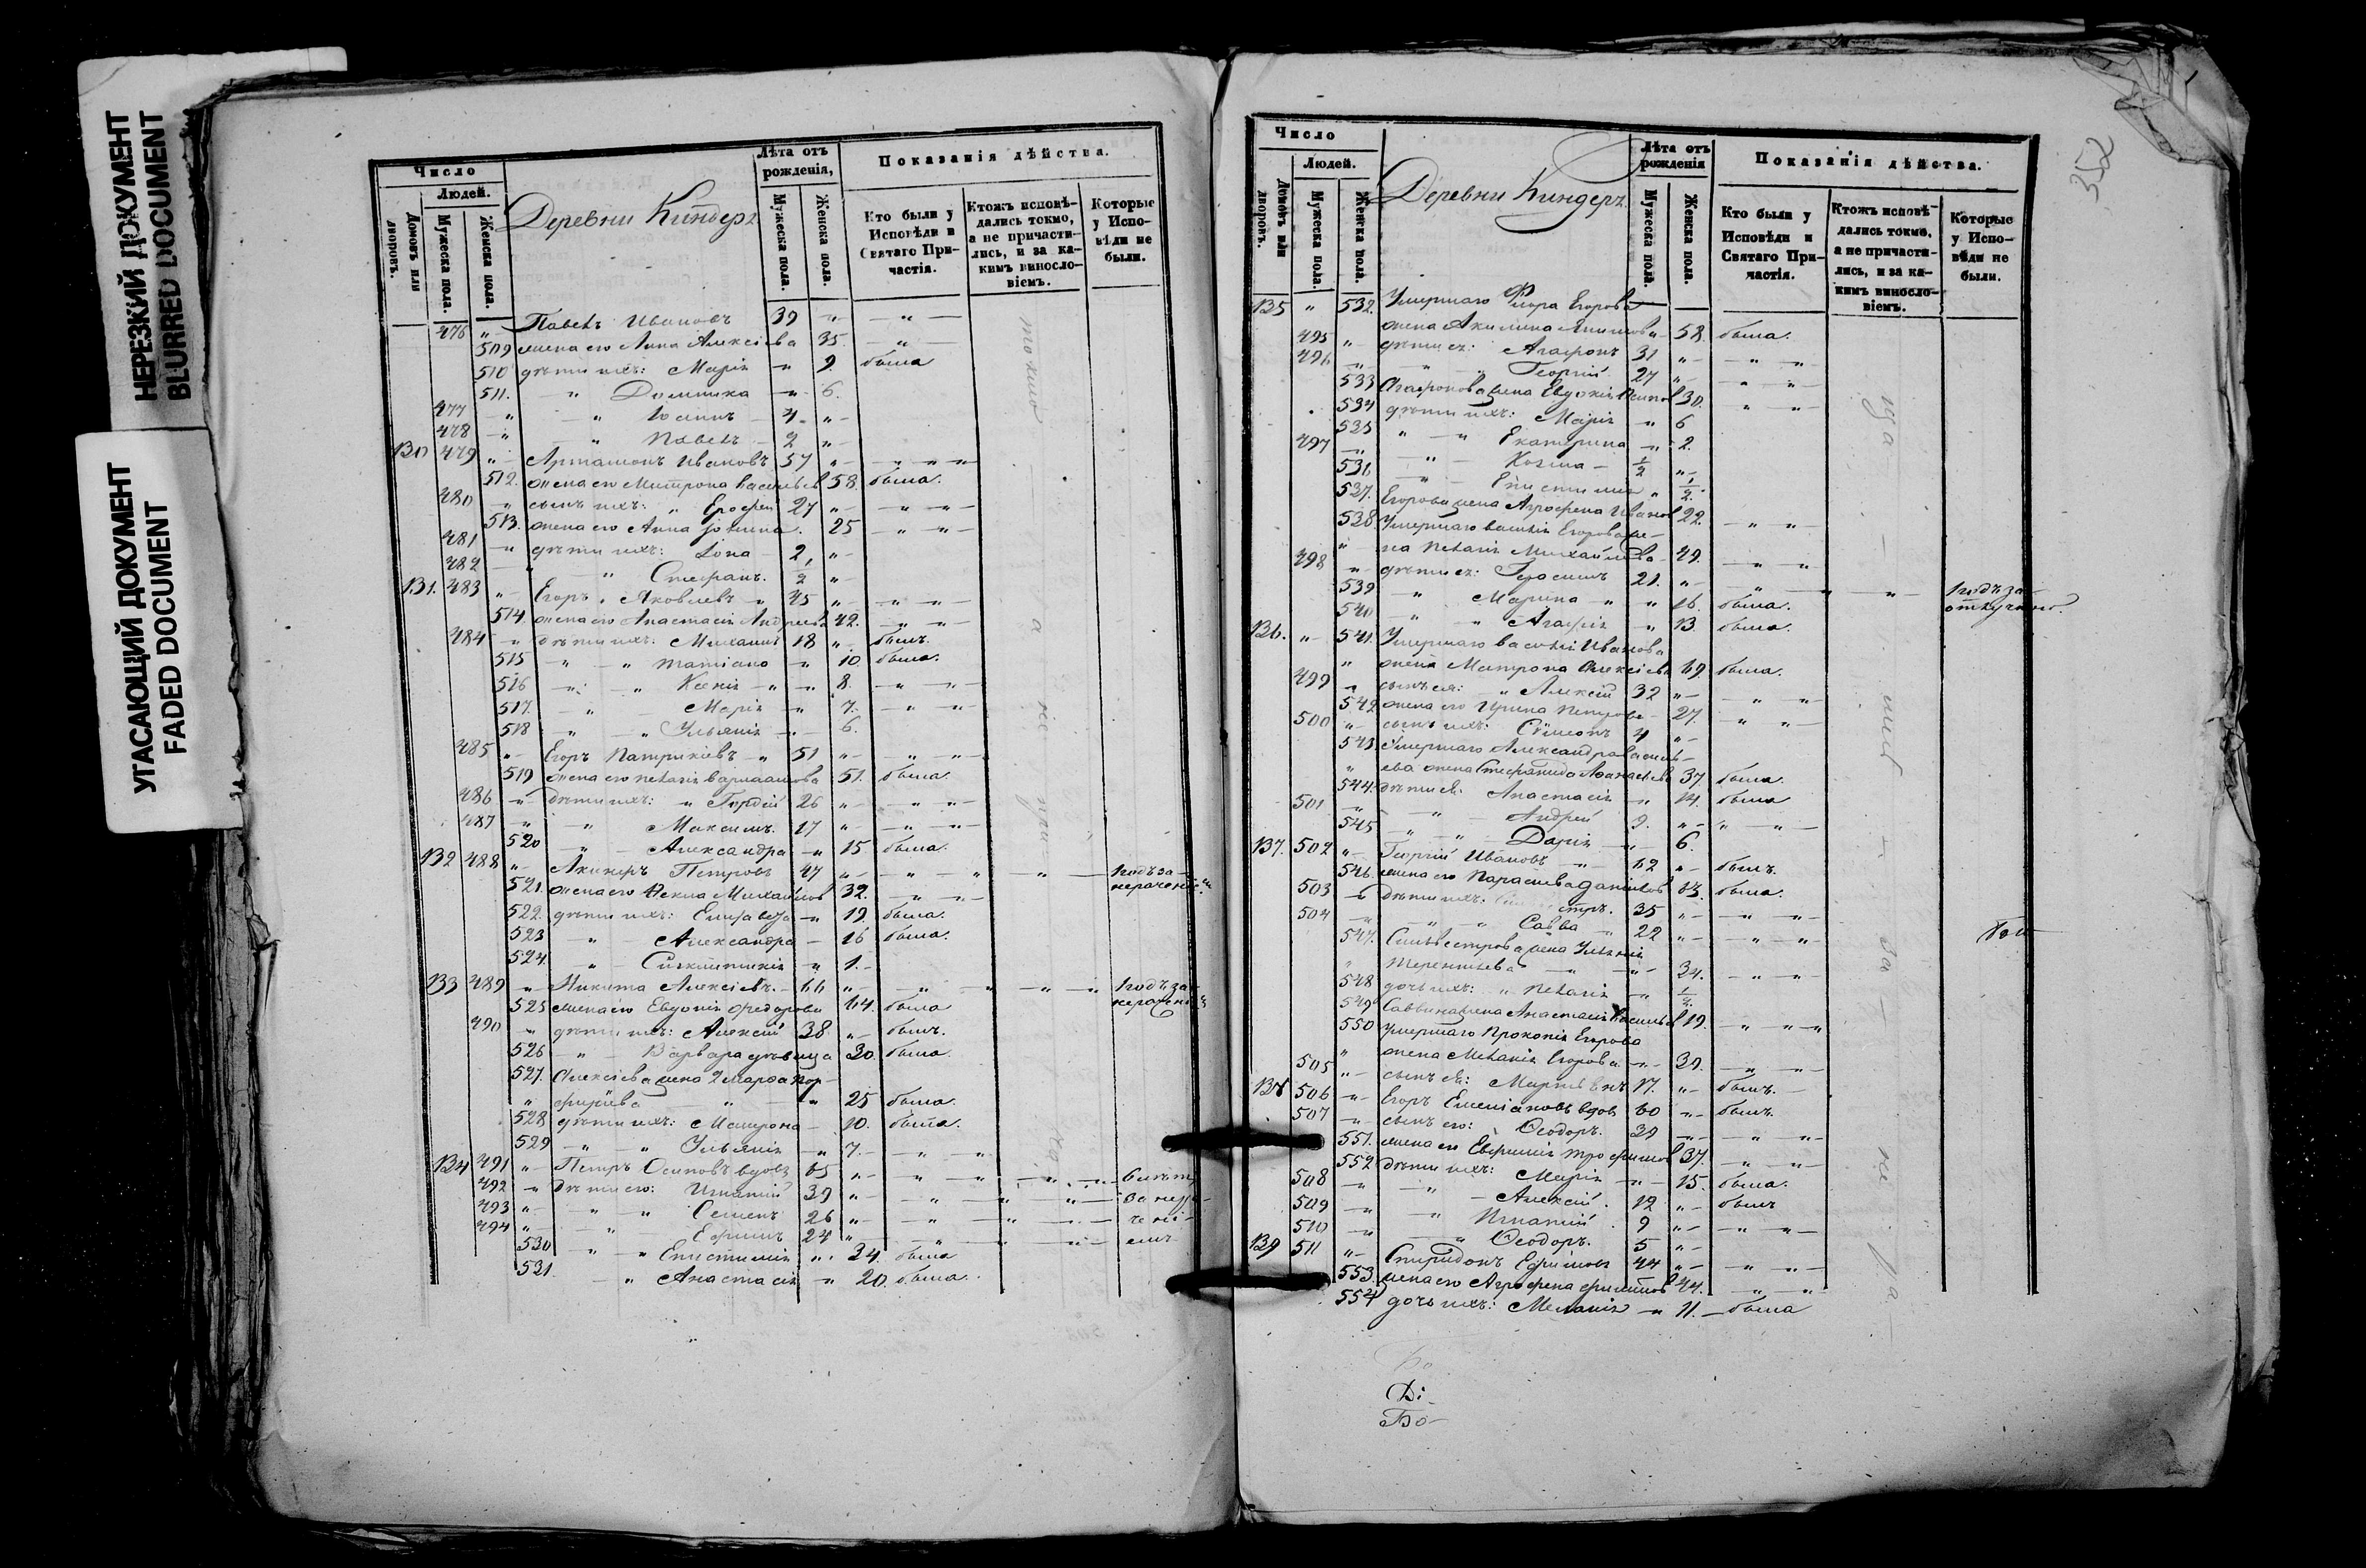 НЕРЕЗКИЙ ДОКУМЕНТ
BLURRED DOCUMENT
УГАСАЮЩИЙ ДОКУМЕНТ
FADED DOCUMENT
Число
Людей.
Домовъ или дворовъ.
Мужеска пола.
Женска пола.
Деревни Киндеръ
Лѣта отъ рожденія,
Мужеска пола.
Женска пола.
Показанія дѣйства.
Кто были у Исповѣди и Святаго При-
частія.
Ктожъ исповѣ-
дались токмо,
а не причасти-
лись, и за ка-
кимъ виносло-
віемъ.
Которые
у Испо-
вѣди не
были.
476 " Павелъ Ивановъ 39 " "
509 жена его Анна Алексіева 35. "
510 дѣти ихъ: Марія " 9. была
511. " Домника " 6.
477 " " Іоаннъ 4. "
478 " " Павелъ 2 "
130 479 " Артамонъ Ивановъ 57 " " " "
512. жена его Митрона 58. была.
480 " сынъ ихъ: " Ерофей 27 " " "
513. жена его Анна 25 " "
481 " дѣти ихъ: Іона 2, "
482 " " Стефанъ. 1/2 "
131. 483 " Егоръ Яковлевъ " 45 " " "
514. жена его Анастасія Андреева 42. " "
484 " дѣти ихъ: Михаилъ 18 " былъ.
515 " " Татіана " 10. была.
516 " " Ксенія " " 8. " "
517. " Марія " 7. " "
518 " " Ульянія " 6.
485 " Егоръ Патрикіевъ " 51 " " "
519 жена его Пелагія Варлаамова 51. была.
486 " дѣти ихъ: " Гордій 26 " " "
487 " " Максимъ. 17 " " "
520 " Александра " 15 была.
132 488 " Петровъ 47 " " " " Подъ за-
нераченіе
521. жена его Текла Михайлов 32. " "
522. дѣти ихъ: Елизавета " 19. была.
523 " Александра 16 была.
524. " Синклитикія " 1.
133 489 " Никита Алексіевъ. 66 " " " " " Подъ за-
525 жена его Евдокія Федорова 64. была
490 " дѣти ихъ: Алексій 38. " былъ.
526 " Варвара дѣвица 30. была.
527. Алексіева жена 2 Марѳа Пор-
" фиріева " " 25 была.
528 дѣти ихъ: Матрона 10. была.
529 " " Ульянія " 7. " "
134 491 " Петръ Осиповъ вдовъ 65 " " " "
492 " дѣти его: Игнатій 39 " " " " за нера-
493 " " " Семенъ 26 " " " " чені-
494 " " Ефимъ 24 " " " " емъ
530 " " Епистимія " 34. была
531. " Анастасія " 20. была.
352
Число
Людей.
Домовъ или дворовъ.
Мужеска пола.
Женска пола.
Деревни Киндеръ.
Лѣта отъ рожденія
Мужеска пола.
Женска пола.
Показанія дѣйства.
Кто были у
Исповѣди и
Святаго При-
частія.
Ктожъ исповѣ-
дались токмо,
а не причасти-
лись, и за ка-
кимъ виносло-
віемъ.
Которые
у Испо-
вѣди не
были.
135 " 532. Умершаго Флора Егорова
жена Акилина 58. была.
495 " дѣти ея: Агафонъ 31 " " "
496 " " Георгій 27 " " "
533 Агафонова жена Евдокія 30. " "
534 дѣти ихъ: Марія " 6
535 " " Екатерина " 2.
497 " " Козма 1/2 "
536 " Епистимія " 1/2.
537. Егорова жена Агрофена Иванов 22. " "
538. Умершаго Василія Егорова же-
" на Пелагія Михайлова 49. " "
498 " дѣти ея: Герасимъ 21. " " " " Подъ за-
539 " Марина " " 16. была. отлучкою.
540 " Агафія " 13. была.
136. " 541. Умершаго Василія Иванова
" жена Матрона Алексіева 69. была.
499 " сынъ ея: " Алексій 32 " " "
542 жена его Ирина Петрова 27. " "
500 " сынъ ихъ: Симеонъ 4 "
543. Умершаго Александра Василь-
" ева жена Стефанида 37. была.
544. дѣти ея: Анастасія " 14. была
501 " " Андрей 9. " " "
545 " " Дарія " 6.
137. 502 " Георгій Ивановъ " 62 " былъ.
546. жена его Параскева Данилов 63. была.
503 " дѣти ихъ: 35 " " "
504 " " " Савва " 22 " " "
547. Силвестрова жена Ульянія
" Терентьева " " 34. " "
548 дочь ихъ: " Пелагія " 1/2.
549 Саввина жена Анастасія Васильев 19. " " "
550 Умершаго Прокопія Егорова
" жена Меланія Егорова " 39. " "
505 " сынъ ея: 17. " былъ.
138 506 " Егоръ Емеліановъ вдовъ 60 " былъ.
507 " сынъ его: Ѳеодоръ. 39 " " "
551. жена его Евфимія Трофимов 37. " "
552 дѣти ихъ: Марія " 15. была.
508 " " Алексій. 12 " былъ
509 " " Игнатій. 9 " " "
510 " " Ѳеодоръ. 5 "
139 511 " Спиридонъ Ефимовъ 44 " " "
553. жена его Агрофена Филипов 44. " "
554 дочь ихъ: Меланія " 11. была
Бо-